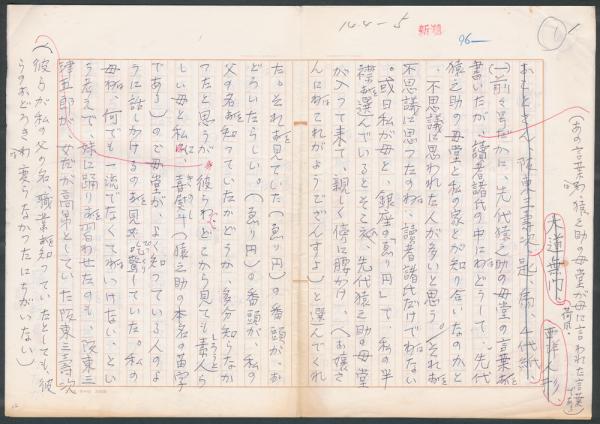 144-5
新潮
96—
1
(あの言葉わ猿之助の母堂が母に言われた言葉
大道無門
西洋人形
おもとさん、阪東三壽次 是
(一)前く号だかに、先代猿之助の母堂の言葉お
書いたが、讀者諸氏の中にわどうして、先代
猿之助の母堂と私の家とが知り合いなのかと
不思議に思われた人が多いと思う。それお
不思議に思つたのわ、讀者諸氏だけでわない
。或日私が母と、銀座の「ゑり円」で、私の半
襟お選んでいるとそこえ、先代猿之助の母堂
が入つて来て、親しく傍に腰かけ、(お嬢さ
んにわこれがようでざんすよ)と選んでくれ
た。それお見ていた(ゑり円)の番頭が、お
どろいたらしい。(ゑり円)の番頭が、私の
父の名お知つていたかどうか、多分知らなか
つたと思うが、彼らわどこから見ても素人ら
しい母と私に喜熨斗(猿之助の本名の苗字
である)の母堂が、よく知つている人のよ
うに話しかけるのお見て驚いていた。私の
母わ、何でも一流でなくてわいけない、とい
う考えで、妹に踊りお習わせたのも、阪東三
津五郎が、女だが高弟としていた阪東三壽次
(彼らが私の父の名、職業お知つていたとしても、彼
らのおどろきわ妻らなかつたにちがいない)